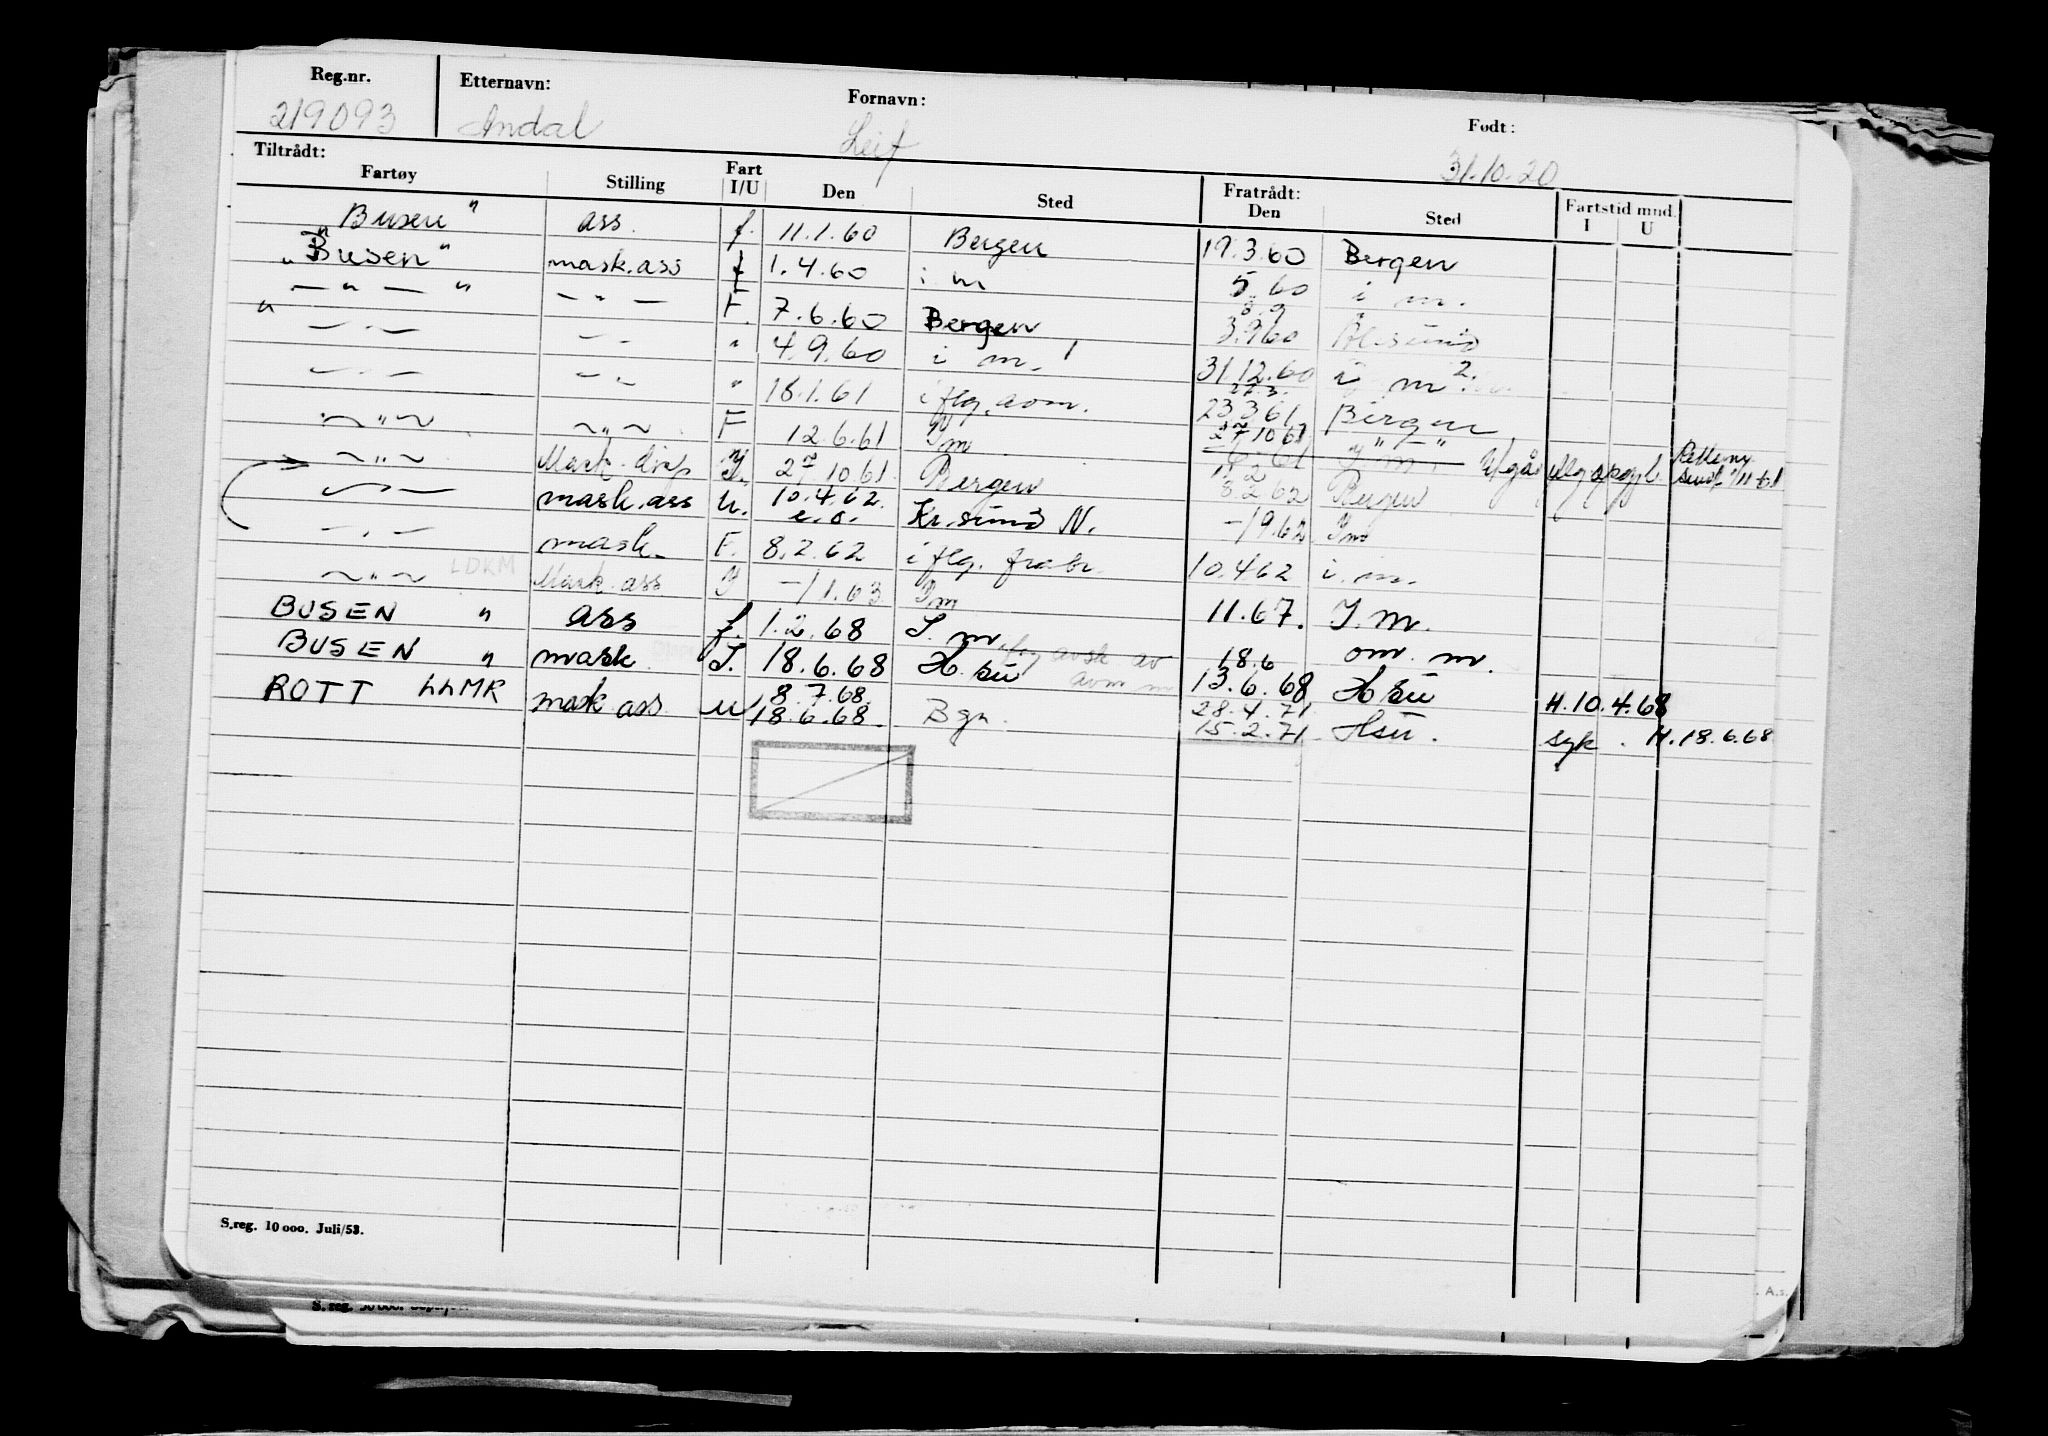 Reg.nr. Etternavn: Fornavn: Født:
219093 Andal Leif 31.10.20
Tiltrådt: Fratrådt: Fartstid mnd.
Fartøy Stilling Fart I/U Den Sted Den Sted I U
"Busen" ass. f. 11.1.60 Bergen 19.3.60 Bergen
"Busen" mask.ass f 1.4.60 i m 5.60 i m.
— " — " — " — F. 7.6.60 Bergen 3.9.60 Ål.sund
" — " — — " — " 4.9.60 i m. 31.12.60 i m.
— " — — " — " 18.1.61 i flg. avm. 23.3.61 Bergen
— " — — " — F 12.6.61 I m 27.10.61 — " —
— " — Mask. 27.10.61 Bergen 3.2.62 Bergen
— " — mask.ass u. 10.4.62 Kr.sund N. -/9.62 I m
— " — mask. F. 8.2.62 i flg. 10.4.62 i. m.
— " — LDKM Mask. ass -/1.63 I m 11.67. I. m.
BUSEN " ass f. 1.2.68 I. m. 18.6 om. m.
BUSEN " mask. I. 18.6.68 H.su 13.6.68 H su H.10.4.68
ROTT LLMR mask.ass u 8.7.68 18.6.68. Bgn. 28.4.71 15.2.71 Hsu. syk. H.18.6.68
S.reg. 10 000. Juli/53.